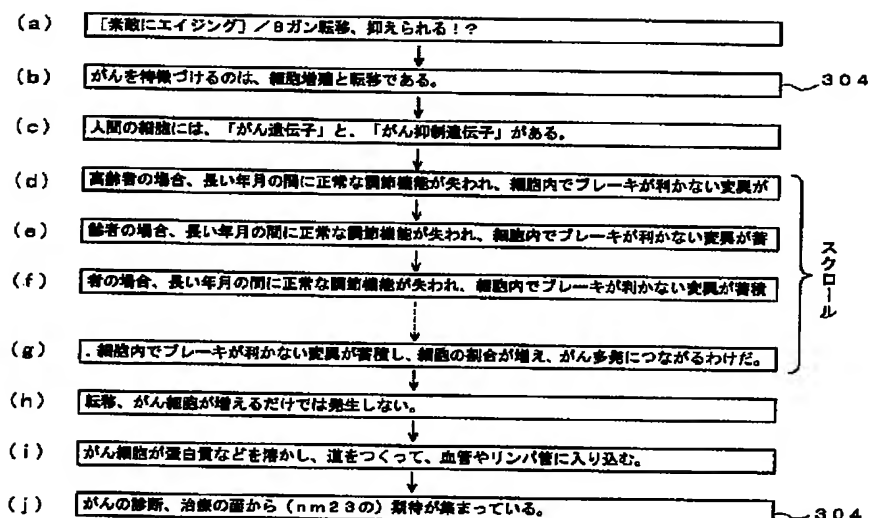 (a) [素敵にエイジング]/8ガン転移、抑えられる!?
(b) がんを特徴づけるのは、細胞増殖と転移である。 304
(c) 人間の細胞には、「がん遺伝子」と、「がん抑制遺伝子」がある。
(d) 高齢者の場合、長い年月の間に正常な調節機能が失われ、細胞内でブレーキが利かない変異が
(e) 齢者の場合、長い年月の間に正常な調節機能が失われ、細胞内でブレーキが利かない変異が蓄
(f) 者の場合、長い年月の間に正常な調節機能が失われ、細胞内でブレーキが利かない変異が蓄積
スクロール
(g) .細胞内でブレーキが利かない変異が蓄積し、細胞の割合が増え、がん多発につながるわけだ。
(h) 転移、がん細胞が増えるだけでは発生しない。
(i) がん細胞が蛋白質などを溶かし、道をつくって、血管やリンパ管に入り込む。
(j) がんの診断、治療の面から(nm23の)期待が集まっている。 304